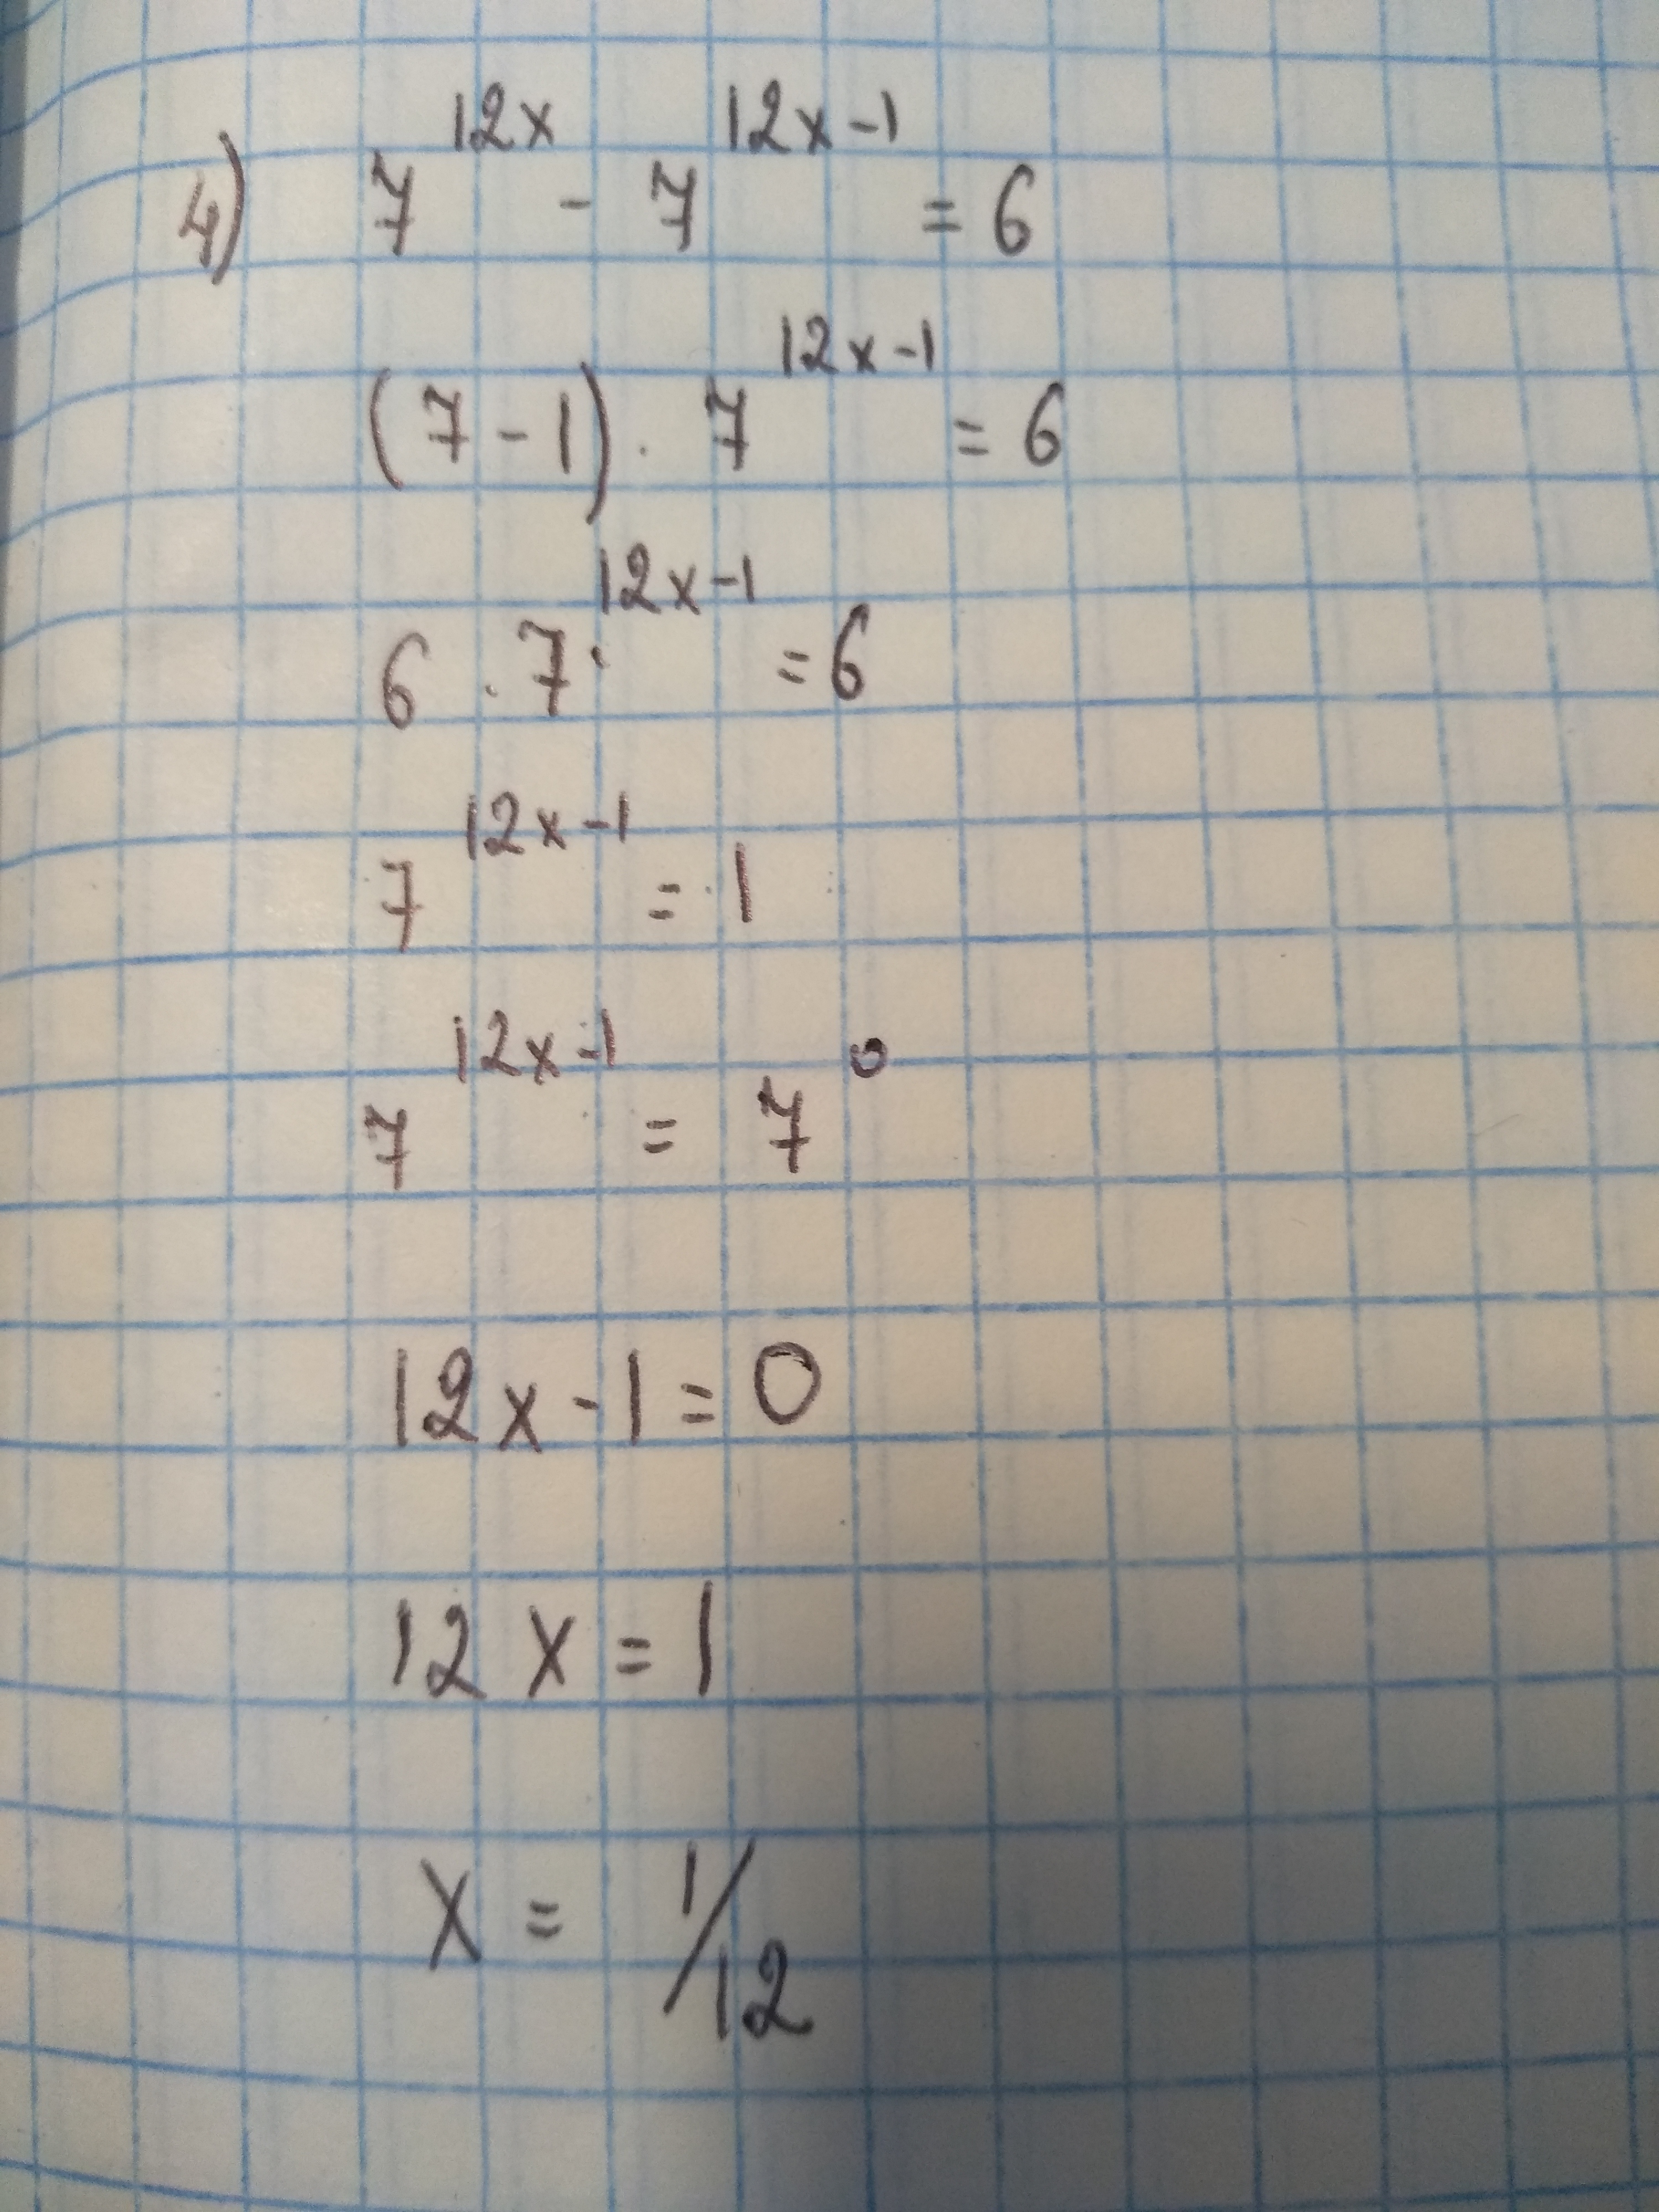 4) 7^{12x} - 7^{12x-1} = 6
(7-1) · 7^{12x-1} = 6
6 · 7^{12x-1} = 6
7^{12x-1} = 1
7^{12x-1} = 7^{0}
12x-1=0
12x=1
x = 1/12